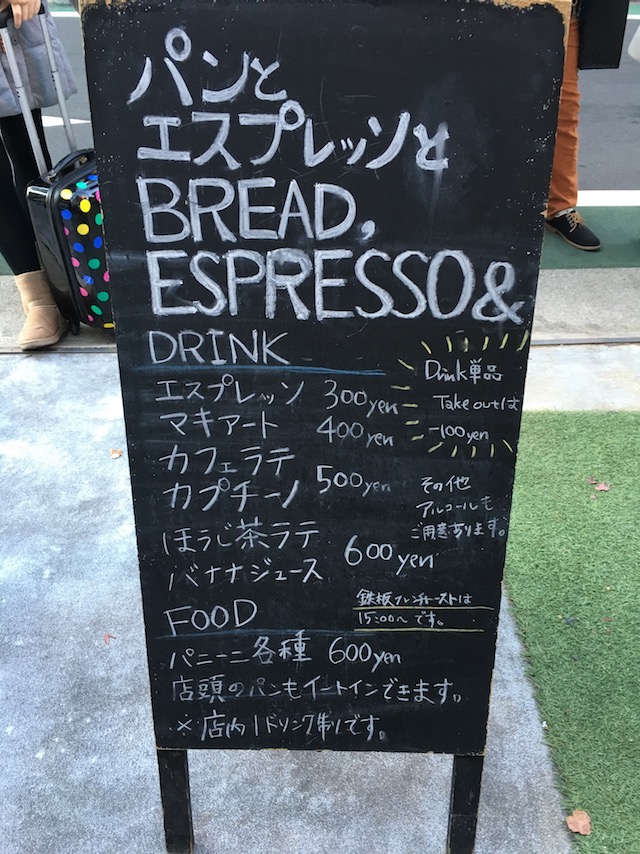 パンと
エスプレッソと
BREAD,
ESPRESSO&
DRINK
エスプレッソ 300yen
マキアート 400yen
カフェラテ
カプチーノ 500yen
ほうじ茶ラテ
バナナジュース 600yen
Drink単品
Take outは
-100yen
その他
アルコールも
ご用意あります。
FOOD
鉄板フレンチトーストは
15:00〜です。
パニーニ各種 600yen
店頭のパンもイートインできます。
※店内1ドリンク制です。